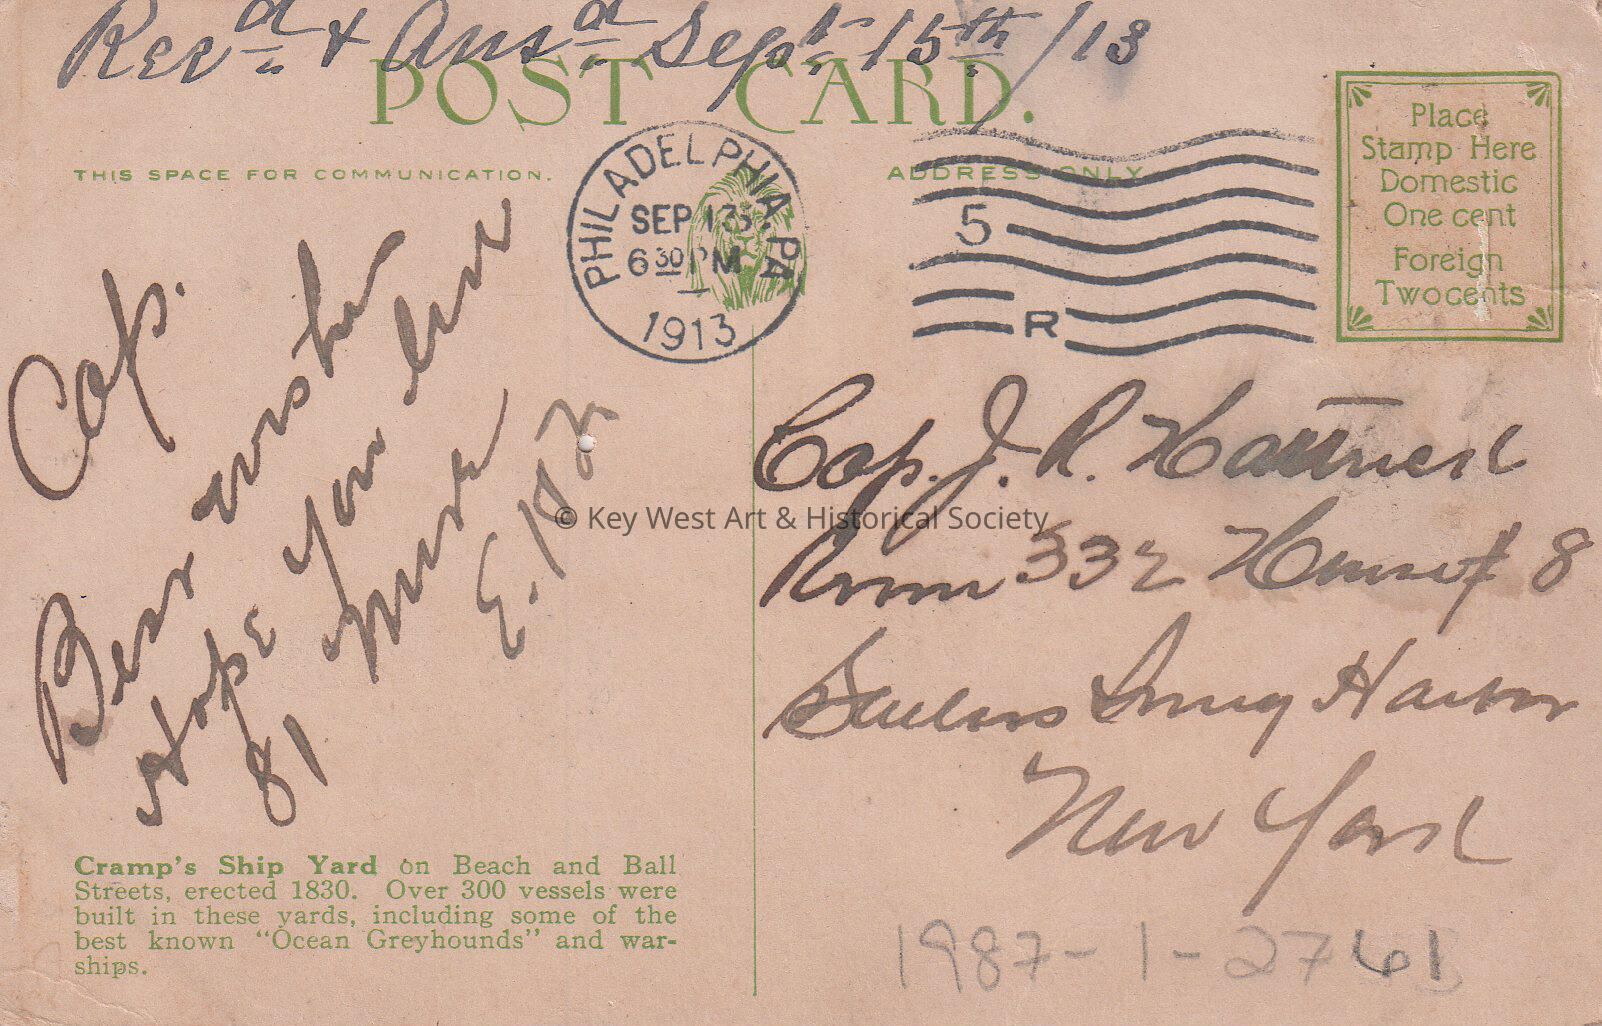 Recd & Ansd Sept. 15th/13
POST CARD.
THIS SPACE FOR COMMUNICATION.
ADDRESS ONLY
PHILADELPHIA. PA
SEP 13
6 30 PM
1913
5
R
Place
Stamp Here
Domestic
One cent
Foreign
Two cents
Cap.
Best wishes
Hope you live
81 more
Cap. J. R.
Room 332 House # 8
Sailors Snug Harbor
New York
© Key West Art & Historical Society
Cramp's Ship Yard on Beach and Ball
Streets, erected 1830. Over 300 vessels were
built in these yards, including some of the
best known "Ocean Greyhounds" and war-
ships.
1987-1-2761